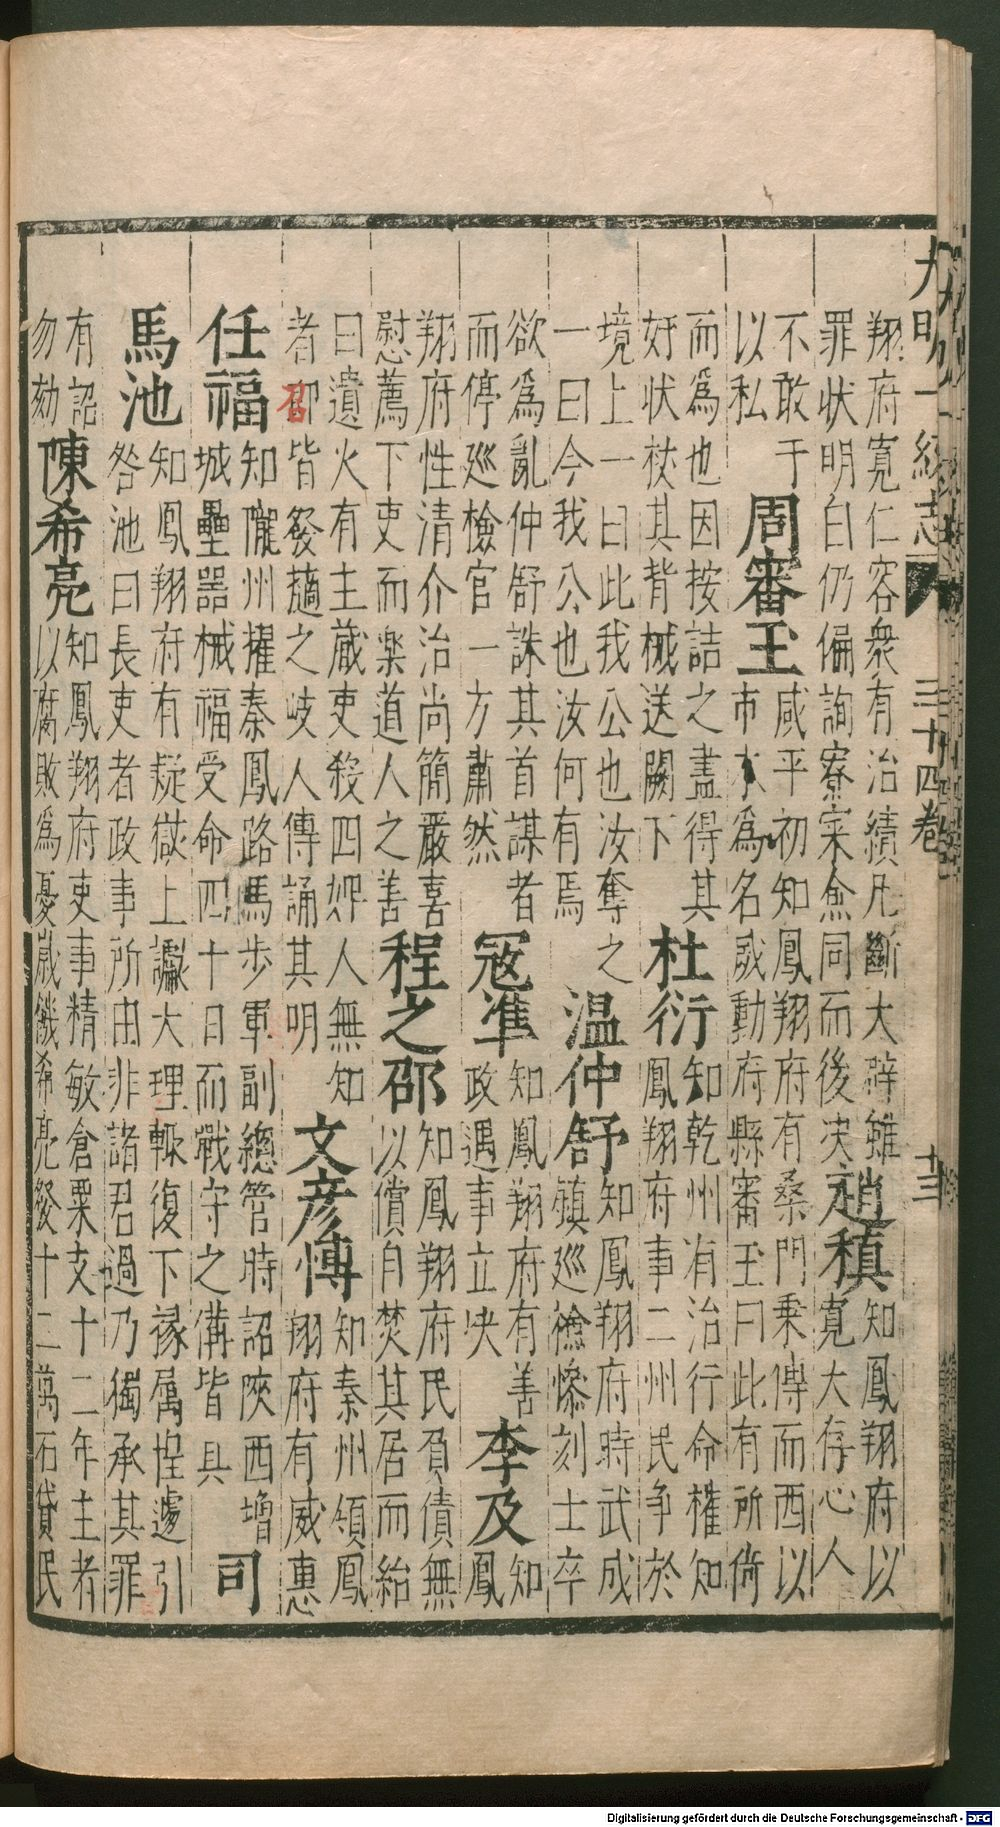 大明一統志 三十四卷 十三
翔府寬仁容衆有治績凡斷大辟雖
罪狀明白仍偏詢寮寀僉同而後決
趙稹
知鳳翔府以
寬大存心人
不敢于
以私
周審玉
咸平初知鳳翔府有桑門乗傳而西以
市木爲名感動府縣審玉曰此有所倚
而爲也因按詰之盡得其
奸状杖其背械送闕下
杜衍
知乾州有治行命權知
鳳翔府事二州民争於
境上一曰此我公也汝奪之
一曰今我公也汝何有焉
温仲舒
知鳳翔府時武成
鎮巡檢慘刻士卒
欲爲亂仲舒誅其首謀者
而停巡檢官一方肅然
寇凖
知鳳翔府有善
政遇事立决
李及
知
鳳
翔府性清介治尚簡嚴喜
慰薦下吏而樂道人之善
程之邵
知鳳翔府民負債無
以償自焚其居而紿
曰遺火有主蔵吏殺四婢人無知
者邵皆發擿之岐人傳誦其明
文彥愽
知秦州領鳳
翔府有威惠
任福
知隴州擢秦鳳路馬步軍副總管時詔陝西增
城壘噐械福受命四十日而戰守之俻皆具
司
馬池
知鳳翔府有疑獄上讞大理輙復下掾属惶遽引
咎池曰長吏者政事所由非諸君過乃獨承其罪
有詔
勿劾
陳希亮
知鳳翔府吏事精敏倉粟支十二年主者
以腐敗爲憂歳饑希亮發十二萬石貸民
Digitalisierung gefördert durch die Deutsche Forschungsgemeinschaft - DFG